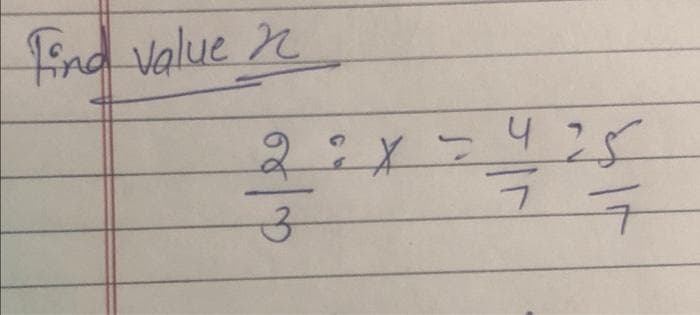 Find value x
2/3 : x = 4/7 : 5/7